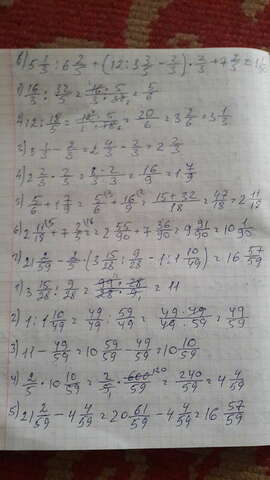 в) 5 1/3 : 6 2/5 + (12 : 3 3/5 - 2/3) · 2/3 + 7 2/5 =
1) 16/3 : 32/5 = 16/3 · 5/32 = 5/6
2) 12 : 18/5 = 12/1 · 5/18 = 20/6 = 3 2/6 = 3 1/3
3) 3 1/3 - 2/3 = 2 4/3 - 2/3 = 2 2/3
4) 2 2/3 · 2/3 = 8·2/3·3 = 16/9 = 1 7/9
5) 5/6 + 1 7/9 = 5/6 + 16/9 = 15+32/18 = 47/18 = 2 11/18
6) 2 11/18 + 7 2/5 = 2 55/90 + 7 36/90 = 9 91/90 = 10 1/90
г) 21 2/59 - 2/5 · (3 15/28 : 9/28 - 1 : 1 10/49) = 16 57/59
1) 3 15/28 : 9/28 = 99·28/28·9 = 11
2) 1 : 1 10/49 = 49/49 : 59/49 = 49·49/49·59 = 49/59
3) 11 - 49/59 = 10 59/59 - 49/59 = 10 10/59
4) 2/5 · 10 10/59 = 2/5 · 600/59 = 240/59 = 4 4/59
5) 21 2/59 - 4 4/59 = 20 61/59 - 4 4/59 = 16 57/59